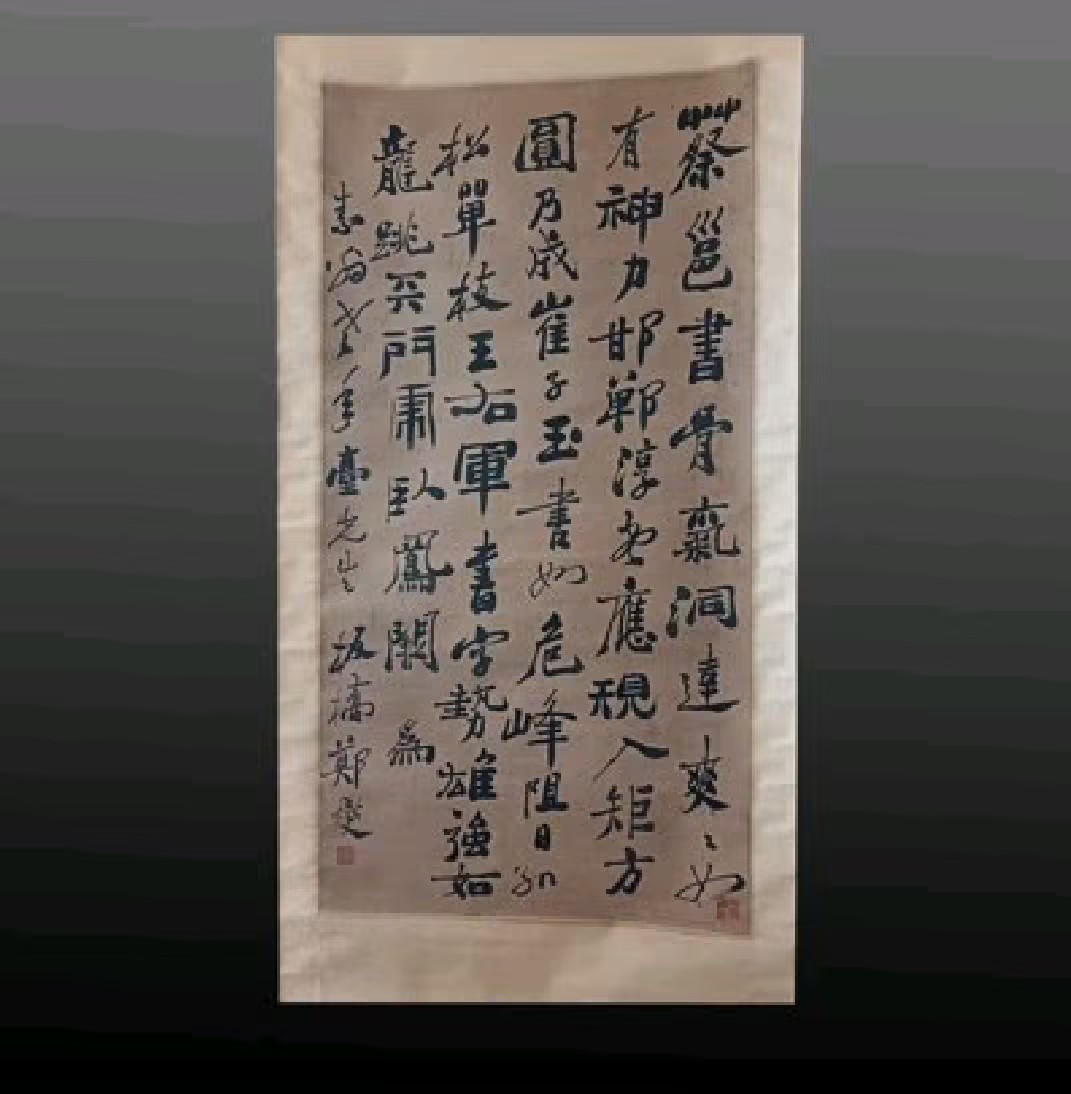 蔡邕書骨氣洞達爽〻如
有神力邯鄲淳書應規入矩方
圓乃成崔子玉書如危峰阻日孤
松單枝王右軍書字勢雄強如
龍跳天門虎臥鳳闕 為
翁老年臺先生 板橋鄭燮